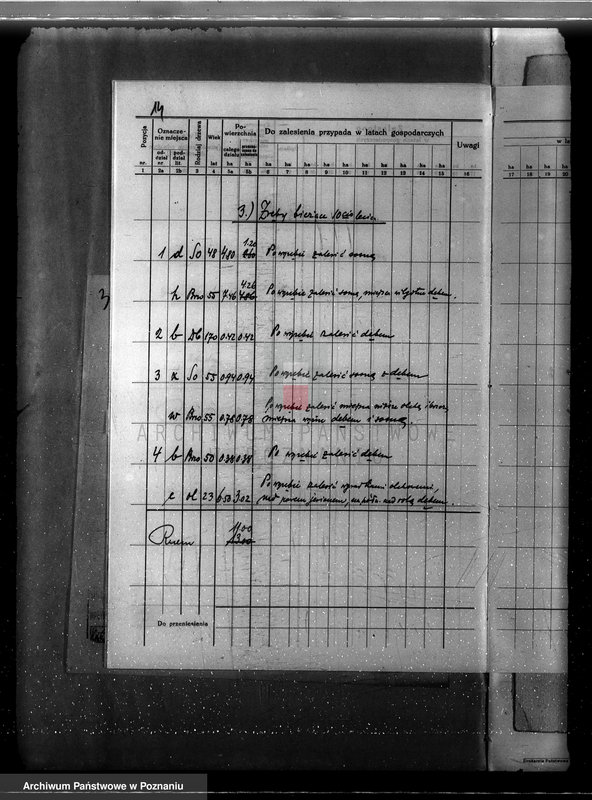 14
Pozycja Oznaczenie miejsca Rodzaj drzewa Wiek Powierzchnia Do zalesienia przypada w latach gospodarczych Uwagi w la
oddział poddział całego działu
nr. nr. lit. lat ha ha ha ha ha ha ha ha ha ha ha ha ha ha ha ha
1 2a 2b 3 4 5a 5b 6 7 8 9 10 11 12 13 14 15 16 17 18 19 20
3.) Zręby bieżące 10cio lecia
1 d So 48 4.80 1.20 Po wyrębie zalesić sosną
h Brzo 55 7.46 4.26 Po wyrębie zalesić sosną, miejsca wilgotne dębem.
2 b Db 170 0.42 0.42 Po wyrębie zalesić dębem
3 x So 55 0.94 0.94 Po wyrębie zalesić sosną z dębem
w Brzo 55 0.78 0.78 Po wyrębie zalesić miejsca niższe olchą i brzozą
miejsca wyższe dębem i sosną.
4 b Brzo 50 0.38 0.38 Po wyrębie zalesić dębem
c ol 23 6.50 3.02 Po wyrębie zalesić
nad jesionem, dębem.
Razem 11.00
13.00
Do przeniesienia
ARCHIWUM PAŃSTWOWE
Drukarnia Państwowa
Archiwum Państwowe w Poznaniu